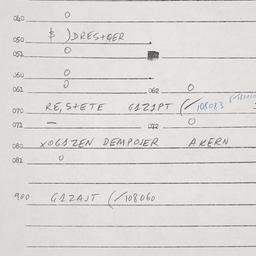 040 0
050 $ )DRES+QER
051 0
060 0
061 0 062 0
070 RE,S+ETE G1Z1PT (/108083
071 — 072 0
080 XOG1ZEN DEMPOJER AKERN
081 0
900 G1ZAJT (/108060